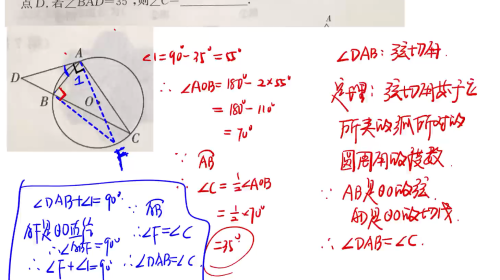 点 D. 若∠BAD=35°,则∠C=
A
D
B
O
C
F
1
A
∠1=90°-35°=55°
∴ ∠AOB=180°-2×55°
=180°-110°
=70°
∵ AB
∴ ∠C=½∠AOB
=½×70°
=35°
∠DAB: 弦切角
定理: 弦切角等于它
所夹的弧所对的
圆周角的度数
∵ AB是⊙O的弦
AD是⊙O的切线
∴ ∠DAB=∠C.
∠DAB+∠1=90°
AF是⊙O直径
∴∠ABF=90°
∴∠F+∠1=90°
∵ AB
∴∠F=∠C
∴∠DAB=∠C